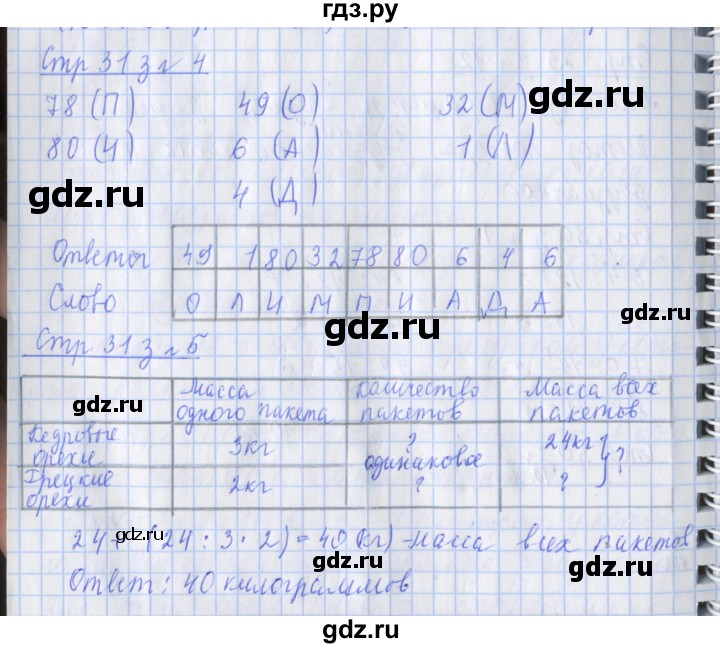 гдз.ру
Стр 31 з № 4
78 (П) 49 (О) 32 (М)
80 (И) 6 (А) 1 (Л)
4 (Д)
gdz.ru
gdz.ru
gdz.ru
Ответы 49 1 80 32 78 80 6 4 6
Слово О Л И М П И А Д А
gdz.ru
Стр 31 з № 5
Масса одного пакета Количество пакетов Масса всех пакетов
gdz.ru
Кедровые орехи 3кг ? одинаковое 24кг ?
Грецкие орехи 2кг ? ?
gdz.ru
gdz.ru
24 + (24 : 3 · 2) = 40 (кг) - масса всех пакетов
gdz.ru
Ответ: 40 килограммов
gdz.ru
gdz.ru